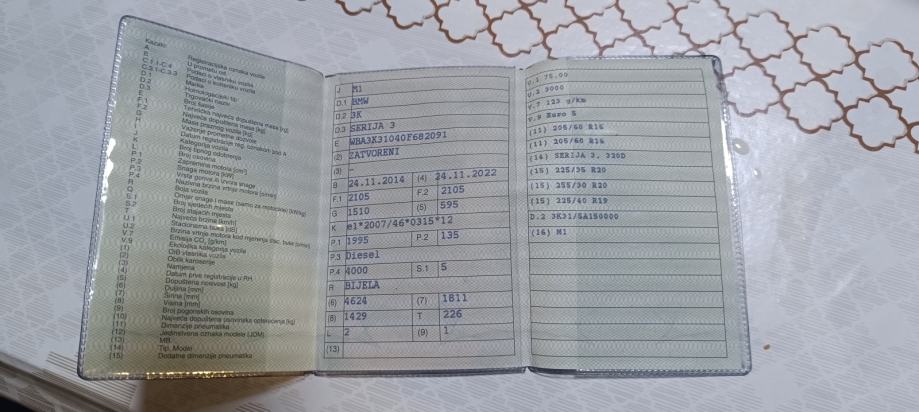 Kazalo:
A Registracijska oznaka vozila
B U prometu od
C.1.1-C.4 Podaci o vlasniku vozila
C.3.1-C.3.3 Podaci o korisniku vozila
D.1 Marka
D.2 Homologacijski tip
D.3 Trgovački naziv
E Broj šasije
F.1 Tehnička najveća dopuštena masa [kg]
F.2 Najveća dopuštena masa [kg]
G Masa praznog vozila [kg]
H Važenje prometne dozvole
I
J Kategorija vozila
K Broj tipnog odobrenja
L Broj osovina
P.1 Zapremina motora [cm³]
P.2 Snaga motora [kW]
P.3 Vrsta goriva ili izvora snage
P.4
R Boja vozila
Q
S.1 Broj sjedećih mjesta
S.2 Broj stajaćih mjesta
T Najveća brzina [km/h]
U.1 Stacionarna buka [dB]
U.2
V.7 Emisija CO₂ [g/km]
V.9 Ekološka kategorija vozila
(1) OIB vlasnika vozila
(2) Oblik karoserije
(3) Namjena
(4) Datum prve registracije u RH
(5) Dopuštena nosivost [kg]
(6) Duljina [mm]
(7) Širina [mm]
(8) Visina [mm]
(9) Broj pogonskih osovina
(10) Najveća dopuštena osovinska opterećenja [kg]
(11) Dimenzije pneumatika
(12) Jedinstvena oznaka modela (JOM)
(13) MB
(14) Tip, Model
(15) Dodatne dimenzije pneumatika
J M1
D.1 BMW
D.2 3K
D.3 SERIJA 3
E WBA3K31040F682091
(2) ZATVORENI
(3) -
B 24.11.2014 (4) 24.11.2022
F.1 2105 F.2 2105
G 1510 (5) 595
K e1*2007/46*0315*12
P.1 1995 P.2 135
P.3 Diesel
P.4 4000 S.1 5
R BIJELA
(6) 4624 (7) 1811
(8) 1429 T 226
L 2 (9) 1
(13)
U.1 75.00
U.2 3000
V.7 123 g/km
V.9 Euro 5
(11) 205/60 R16
(11) 205/60 R16
(14) SERIJA 3, 320D
(15) 225/35 R20
(15) 255/30 R20
(15) 225/40 R19
D.2 3K31/5A150000
(16) M1